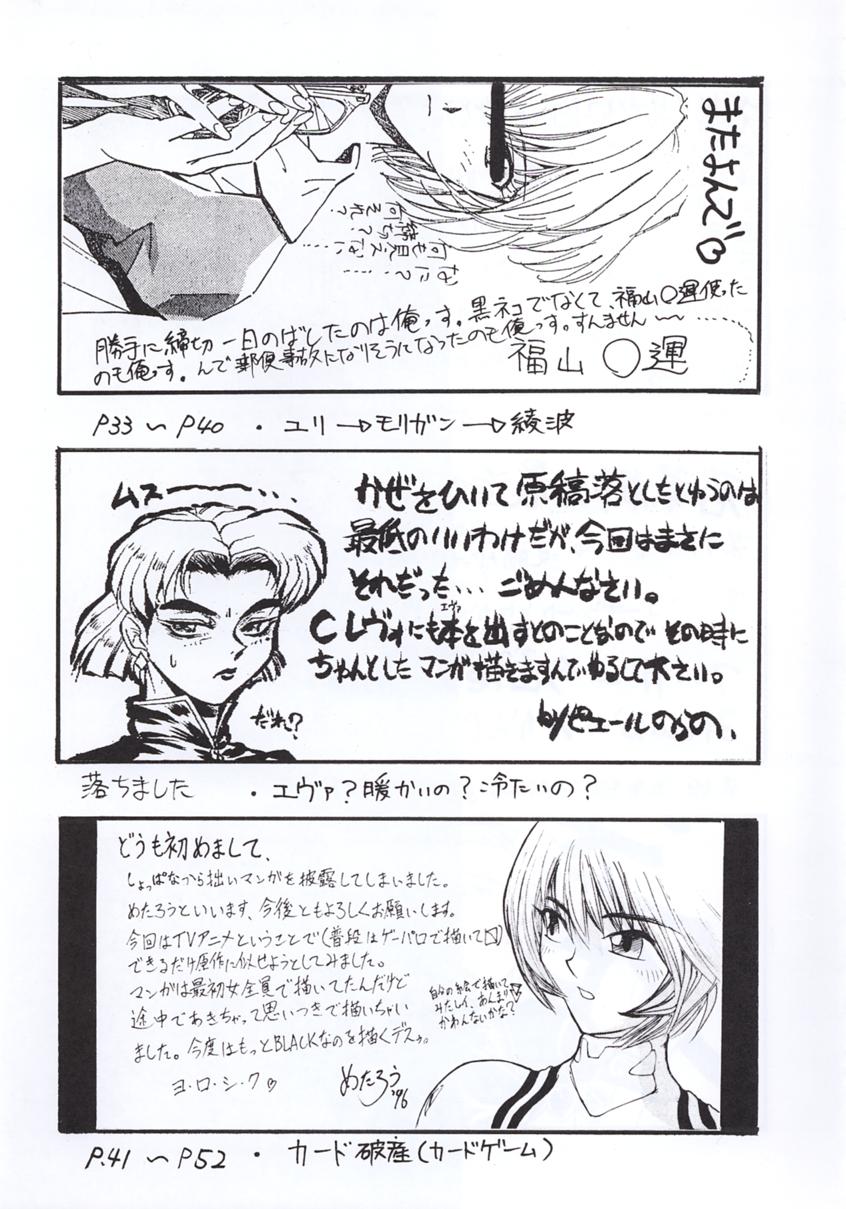 まだよんで♡
何それ?
落ち?
何も見えない
なに?……
勝手に締切一日のばしたのは俺っす。黒ネコでなくて、福山〇運使った
のも俺っす。んで郵便事故になりそうになったのも俺っす。すんません〜〜……
福山〇運
P33〜P40・ユリ→モリガン→綾波
ムスーー・・・
かぜをひいて原稿落としたとゆうのは
最低のいいわけだが、今回はまさに
それだった… ごめんなさい。
Cレヴォにも本を出すとのことなのでその時に
エヴァ
ちゃんとしたマンガ描きますんでゆるして下さい。
だれ?
落ちました ・エヴァ?暖かいの?冷たいの?
どうも初めまして、
しょっぱなから拙いマンガを披露してしまいました。
めたろうといいます、今後ともよろしくお願いします。
今回はTVアニメということで(普段はゲーパロで描いて〼)
できるだけ原作に似せようとしてみました。
マンガは最初女全員で描いてたんだけど
途中であきちゃって思いつきで描いちゃい
ました。今度はもっとBLACKなのを描くデスゥ。
ヨ・ロ・シ・ク♡
めたろう
'96
自分の絵で描いて
みたしィ、あんまり
かわんないかな?
P.41〜P52・カード破産(カードゲーム)